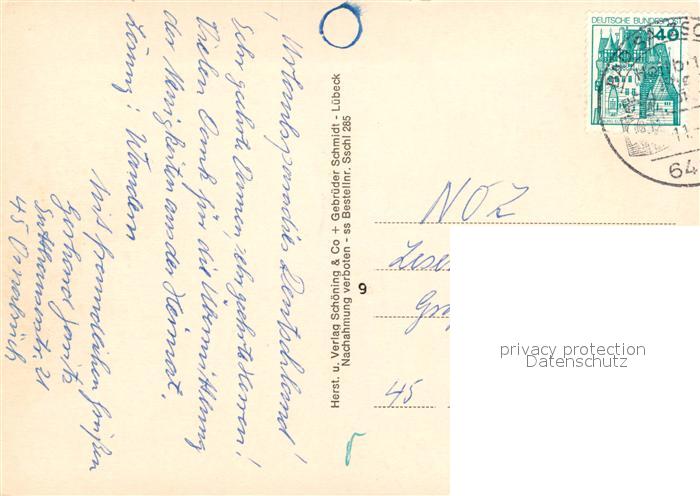 Urlaubsparadies Deutschland!
Sehr geehrte Damen, sehr geehrte Herren!
Vielen Dank für die Übermittlung
der Neuigkeiten aus der Heimat.
Losung: Wandern
Mit freundlichen Grüßen
Gerhard
21
45 Osnabrück
Herst. u. Verlag Schöning & Co + Gebrüder Schmidt - Lübeck
Nachahmung verboten - ss Bestellnr. Sschl 285
9
DEUTSCHE BUNDESPOST
40
11.
64
NOZ
Leser
Gro
45
privacy protection
Datenschutz